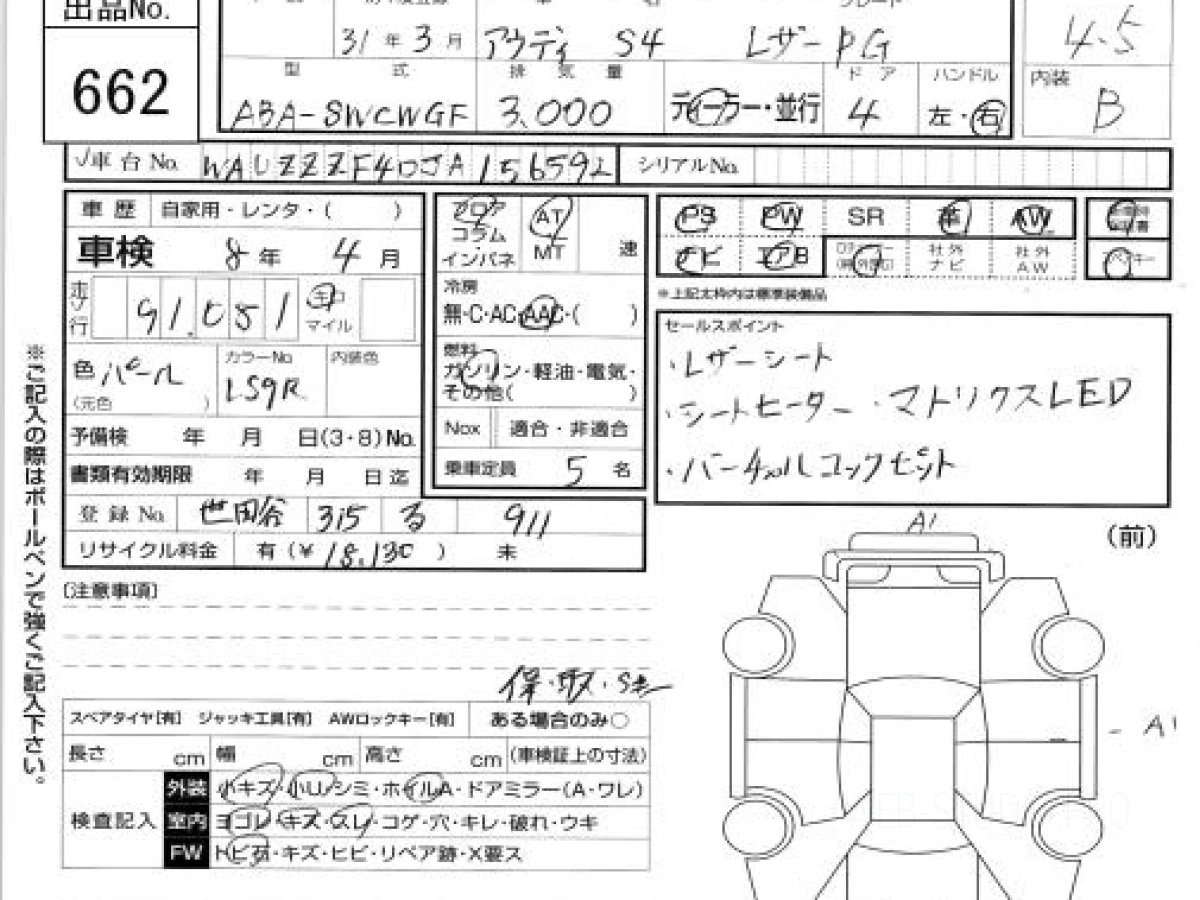 出品No.
662
31年3月 アウディ S4 レザーPG
4.5
型式 排気量 ドア ハンドル
ABA-8WCWGF 3,000 ディーラー・並行 4 左・右
内装
B
車台No. WAUZZZF40JA156592 シリアルNo.
車歴 自家用・レンタ・( )
車検 8年4月
走行 91,051 キロ マイル
色 パール (元色 )
カラーNo LS9R
内装色
予備検 年 月 日(3・8)No.
書類有効期限 年 月 日迄
登録No. 世田谷 315 る 911
リサイクル料金 有(¥18,130) 未
フロア コラム インパネ
AT MT 速
冷房
無・C・AC・AAC・( )
燃料
ガソリン・軽油・電気・
その他( )
Nox 適合・非適合
乗車定員 5 名
PS PW SR 革 AW
ナビ エアB 社外ナビ 社外AW
※上記太枠内は標準装備品
セールスポイント
・レザーシート
・シートヒーター ・マトリクスLED
・バーチャルコックピット
A1
(前)
A1
[注意事項]
保・取・S
スペアタイヤ[有] ジャッキ工具[有] AWロックキー[有] ある場合のみ○
長さ cm 幅 cm 高さ cm (車検証上の寸法)
検査記入
外装 小キズ・小U・シミ・ホイルA・ドアミラー(A・ワレ)
室内 ヨゴレ・キズ・スレ・コゲ・穴・キレ・破れ・ウキ
FW トビ石・キズ・ヒビ・リペア跡・X要ス
※ご記入の際はボールペンで強くご記入下さい。